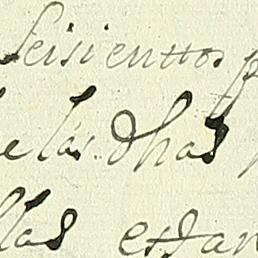 seisienttos p
e las dhas
llas estan